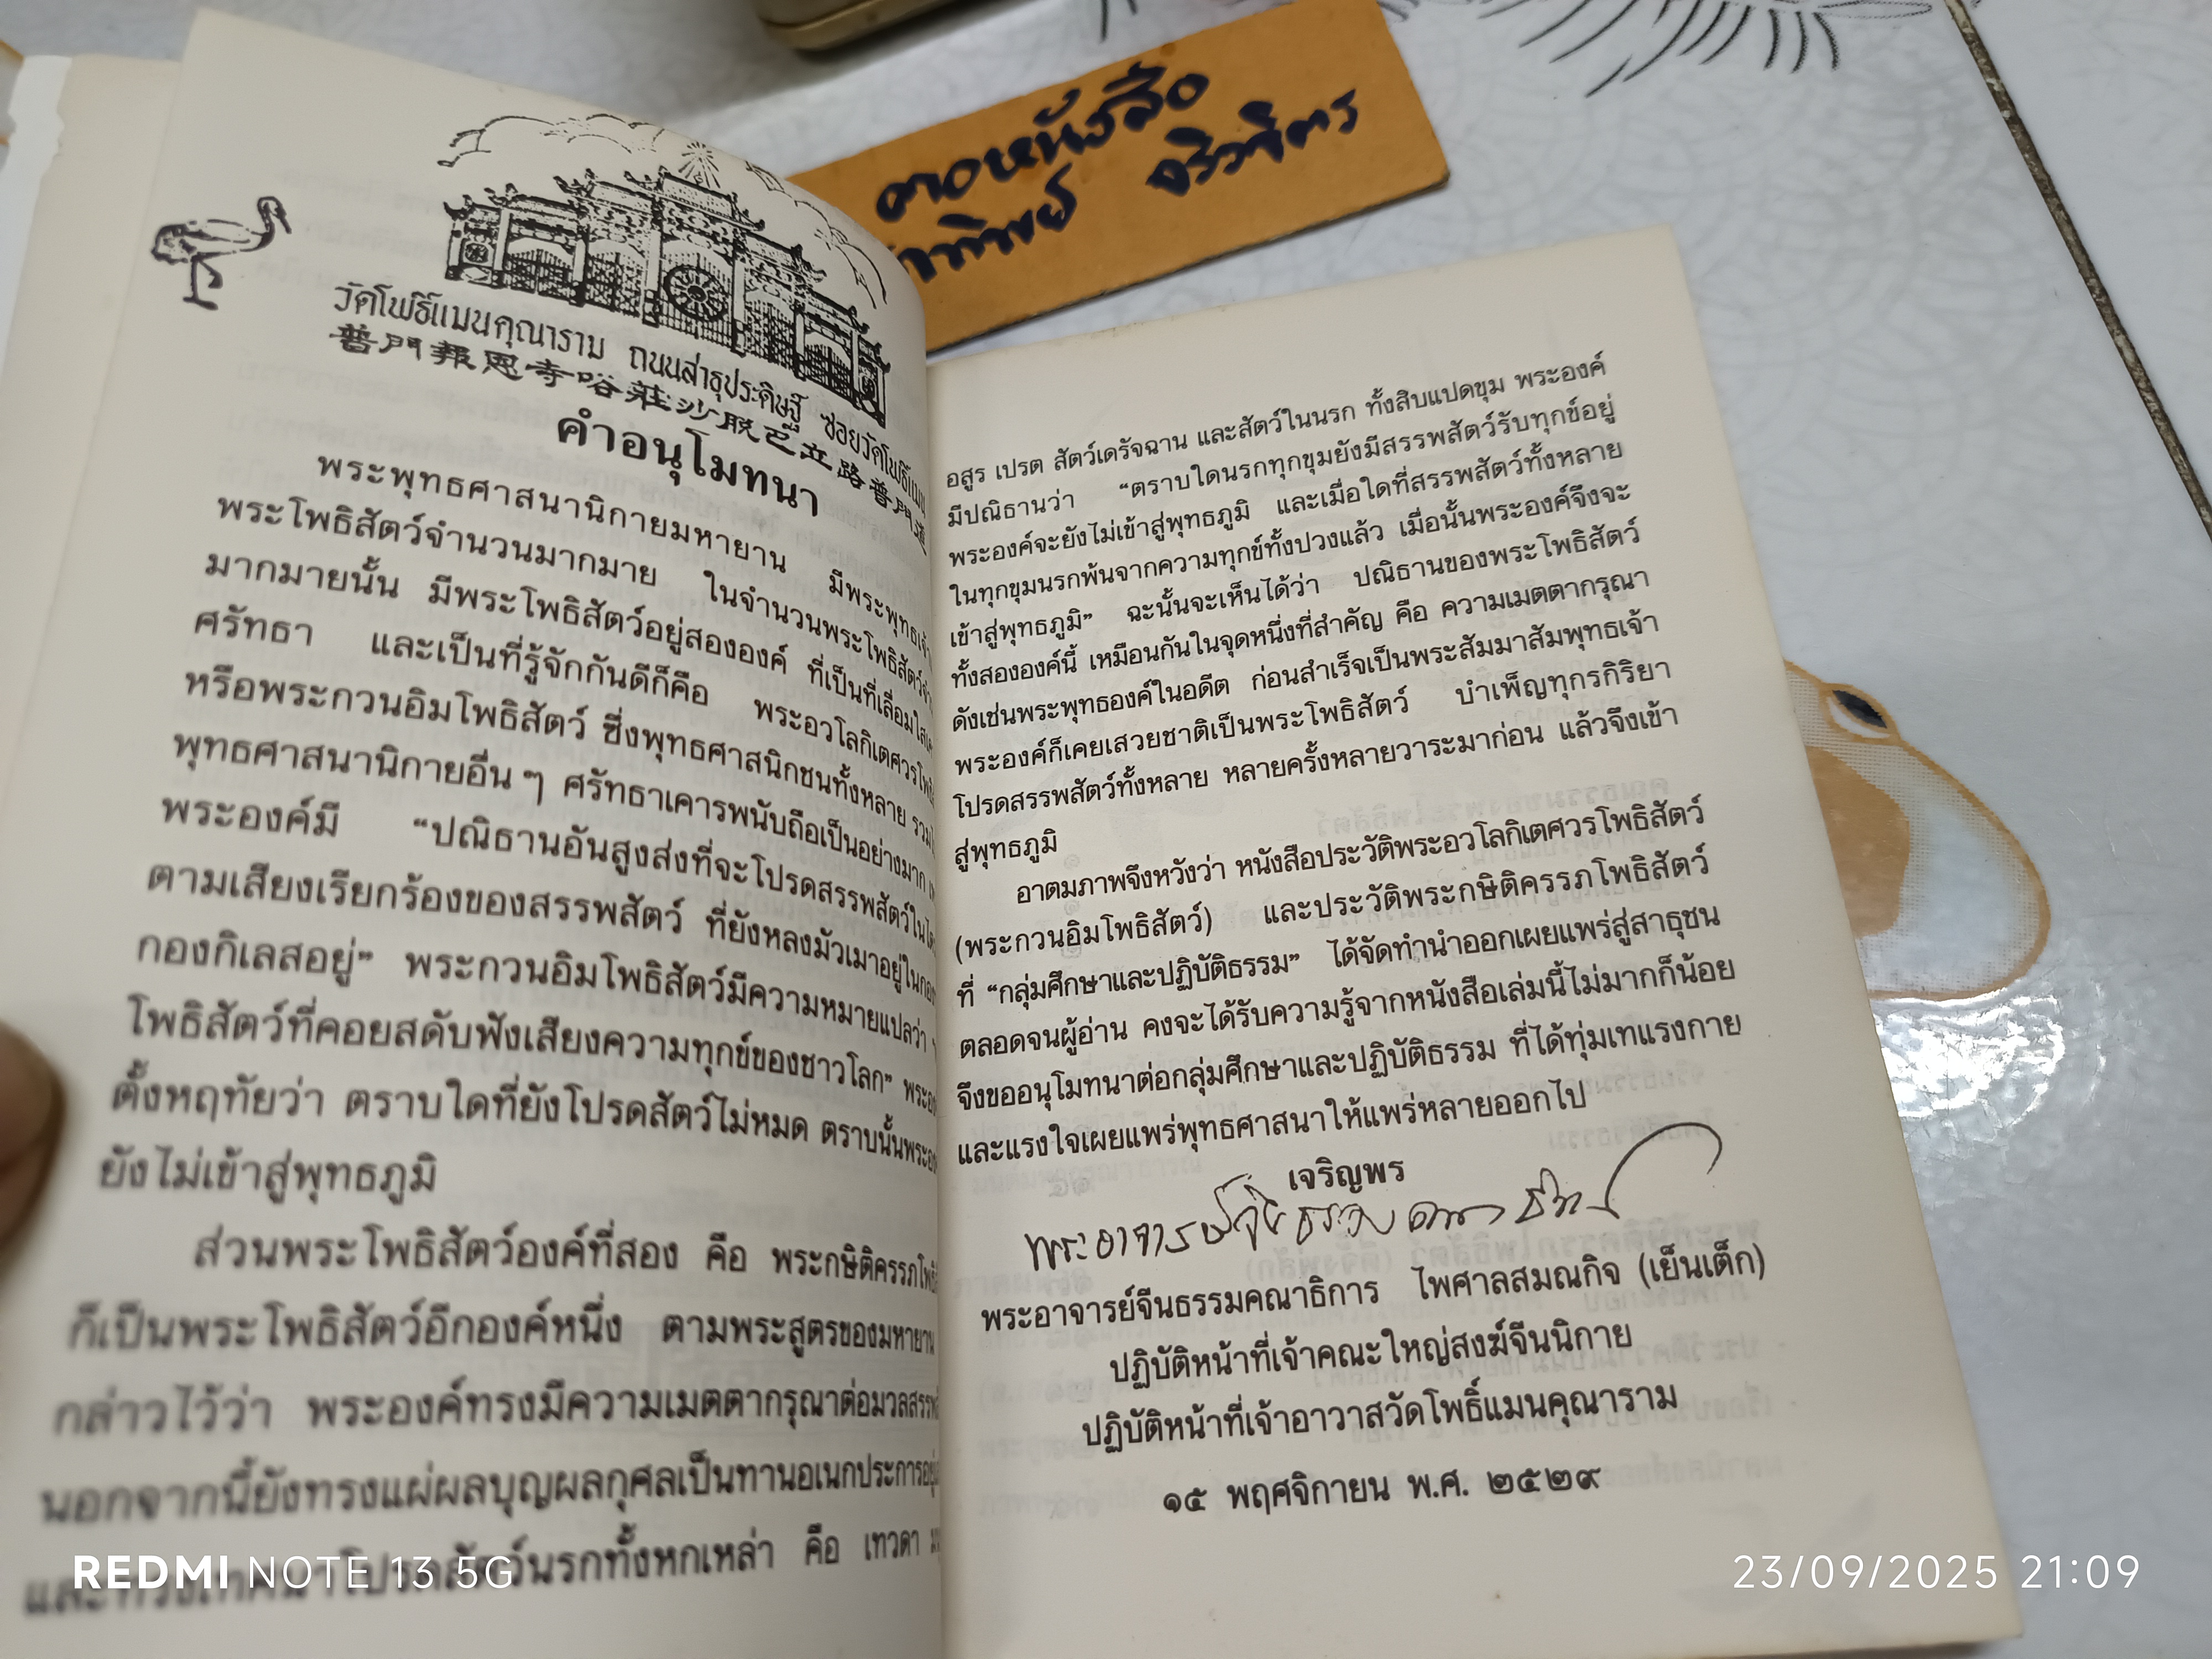 คอหนังสือ
วัดโพธิ์แมนคุณาราม ถนนสาธุประดิษฐ์ ซอยวัดโพธิ์แมน
普門報恩寺
คำอนุโมทนา
พระพุทธศาสนานิกายมหายาน มีพระพุทธเจ้า
พระโพธิสัตว์จำนวนมากมาย ในจำนวนพระโพธิสัตว์
มากมายนั้น มีพระโพธิสัตว์อยู่สององค์ ที่เป็นที่เลื่อมใส
ศรัทธา และเป็นที่รู้จักกันดีก็คือ พระอวโลกิเตศวร
หรือพระกวนอิมโพธิสัตว์ ซึ่งพุทธศาสนิกชนทั้งหลาย
พุทธศาสนานิกายอื่น ๆ ศรัทธาเคารพนับถือเป็นอย่างมาก
พระองค์มี “ปณิธานอันสูงส่งที่จะโปรดสรรพสัตว์ใน
ตามเสียงเรียกร้องของสรรพสัตว์ ที่ยังหลงมัวเมาอยู่ใน
กองกิเลสอยู่” พระกวนอิมโพธิสัตว์มีความหมายแปลว่า
โพธิสัตว์ที่คอยสดับฟังเสียงความทุกข์ของชาวโลก”
ตั้งหฤทัยว่า ตราบใดที่ยังโปรดสัตว์ไม่หมด ตราบนั้น
ยังไม่เข้าสู่พุทธภูมิ
ส่วนพระโพธิสัตว์องค์ที่สอง คือ พระกษิติครรภ
ก็เป็นพระโพธิสัตว์อีกองค์หนึ่ง ตามพระสูตรของมหายาน
กล่าวไว้ว่า พระองค์ทรงมีความเมตตากรุณาต่อมวล
นอกจากนี้ยังทรงแผ่ผลบุญผลกุศลเป็นทานอเนกประการ
โปรดสัตว์นรกทั้งหกเหล่า คือ เทวดา
อสูร เปรต สัตว์เดรัจฉาน และสัตว์ในนรก ทั้งสิบแปดขุม พระองค์
มีปณิธานว่า “ตราบใดนรกทุกขุมยังมีสรรพสัตว์รับทุกข์อยู่
พระองค์จะยังไม่เข้าสู่พุทธภูมิ และเมื่อใดที่สรรพสัตว์ทั้งหลาย
ในทุกขุมนรกพ้นจากความทุกข์ทั้งปวงแล้ว เมื่อนั้นพระองค์จึงจะ
เข้าสู่พุทธภูมิ” ฉะนั้นจะเห็นได้ว่า ปณิธานของพระโพธิสัตว์
ทั้งสององค์นี้ เหมือนกันในจุดหนึ่งที่สำคัญ คือ ความเมตตากรุณา
ดังเช่นพระพุทธองค์ในอดีต ก่อนสำเร็จเป็นพระสัมมาสัมพุทธเจ้า
พระองค์ก็เคยเสวยชาติเป็นพระโพธิสัตว์ บำเพ็ญทุกรกิริยา
โปรดสรรพสัตว์ทั้งหลาย หลายครั้งหลายวาระมาก่อน แล้วจึงเข้า
สู่พุทธภูมิ
อาตมภาพจึงหวังว่า หนังสือประวัติพระอวโลกิเตศวรโพธิสัตว์
(พระกวนอิมโพธิสัตว์) และประวัติพระกษิติครรภโพธิสัตว์
ที่ “กลุ่มศึกษาและปฏิบัติธรรม” ได้จัดทำนำออกเผยแพร่สู่สาธุชน
ตลอดจนผู้อ่าน คงจะได้รับความรู้จากหนังสือเล่มนี้ไม่มากก็น้อย
จึงขออนุโมทนาต่อกลุ่มศึกษาและปฏิบัติธรรม ที่ได้ทุ่มเทแรงกาย
และแรงใจเผยแพร่พุทธศาสนาให้แพร่หลายออกไป
เจริญพร
พระอาจารย์จีนธรรมคณาธิการ
พระอาจารย์จีนธรรมคณาธิการ ไพศาลสมณกิจ (เย็นเต็ก)
ปฏิบัติหน้าที่เจ้าคณะใหญ่สงฆ์จีนนิกาย
ปฏิบัติหน้าที่เจ้าอาวาสวัดโพธิ์แมนคุณาราม
๑๕ พฤศจิกายน พ.ศ. ๒๕๒๙
REDMI NOTE 13 5G
23/09/2025 21:09